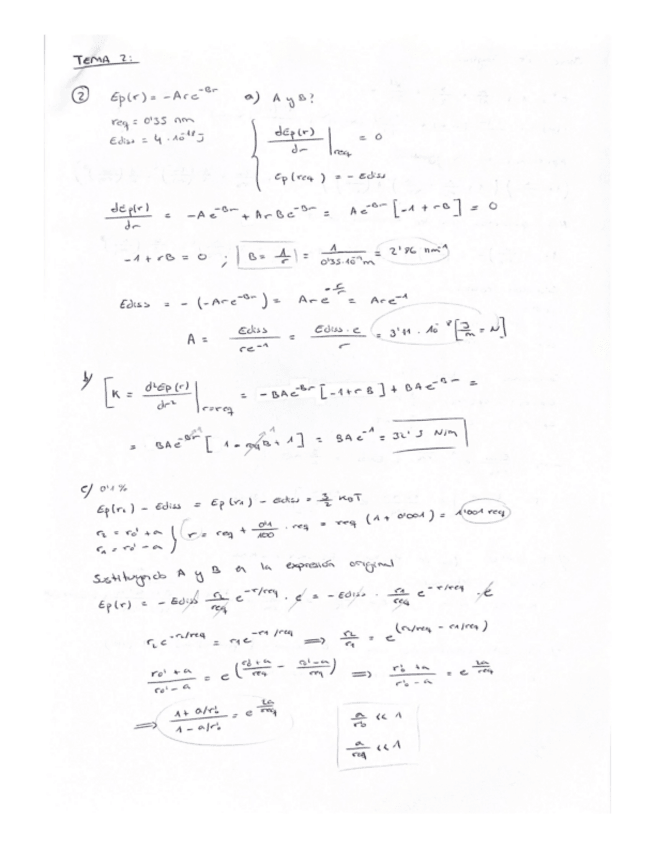 TEMA 2:
② Ep(r) = -Are^-Br a) A y B?
req = 0'35 nm
Ediss = 4 · 10^-19 J
dEp(r)/dr |req = 0
Ep(req) = - Ediss
dEp(r)/dr = -Ae^-Br + ArBe^-Br = Ae^-Br [-1 + rB] = 0
-1 + rB = 0 ; B = 1/r = 1/0'35·10^-9 m = 2'86 nm^-1
Ediss = - (-Are^-Br) = Are^-r/r = Are^-1
A = Ediss/re^-1 = Ediss·e/r = 3'11 · 10^-9 [J/m = N]
b/ [K = d²Ep(r)/dr² |r=req = -BAe^-Br [-1+rB] + BAe^-Br =
= BAe^-Br [1 - rB + 1] = BAe^-1 = 32'3 N/m
c/ 0'1%
Ep(r2) - Ediss = Ep(r1) - Ediss = 3/2 KBT
r2 = r0' + a
r1 = r0' - a
r = req + 0'1/100 · req = req (1 + 0'001) = 1'001 req
Sustituyendo A y B en la expresión original
Ep(r) = - Ediss r2/req e^-r/req · e = - Ediss · r1/req e^-r/req · e
r2e^-r2/req = r1e^-r1/req ⟹ r2/r1 = e^(r2/req - r1/req)
r0' + a / r0' - a = e^(r0'+a/req - r0'-a/req) ⟹ r0' + a / r0' - a = e^2a/req
⟹ 1 + a/r0' / 1 - a/r0' = e^2a/req
a/r0' << 1
a/req << 1